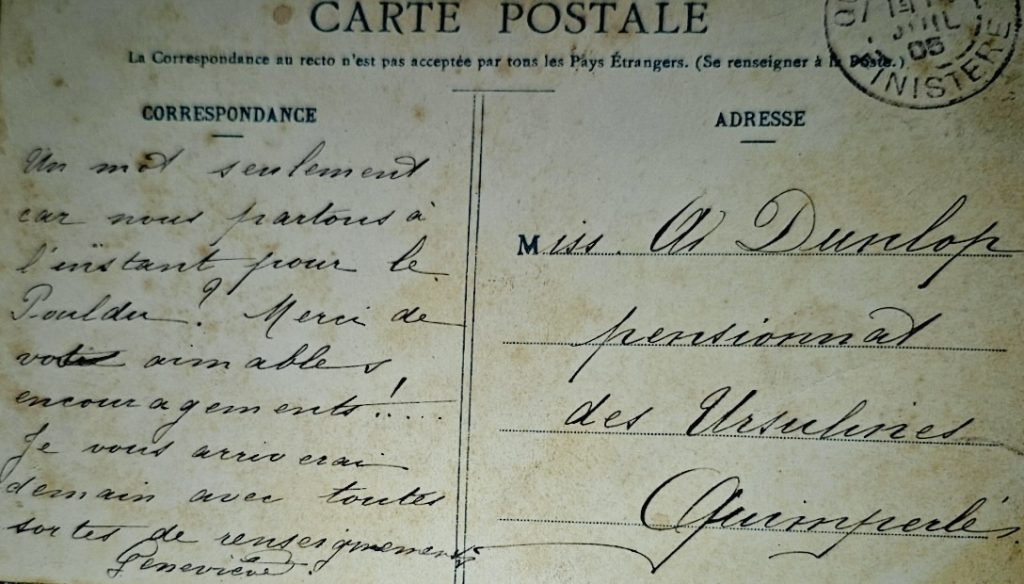 CARTE POSTALE
La Correspondance au recto n'est pas acceptée par tous les Pays Étrangers. (Se renseigner à la Poste.)
JUIL
05
FINISTERE
CORRESPONDANCE
Un mot seulement
car nous partons à
l'instant pour le
Pouldu ? Merci de
vos aimables
encouragements !.....
Je vous arriverai
demain avec toutes
sortes de renseignements
Geneviève.
ADRESSE
Miss. A Dunlop
pensionnat
des Ursulines
Quimperlé.